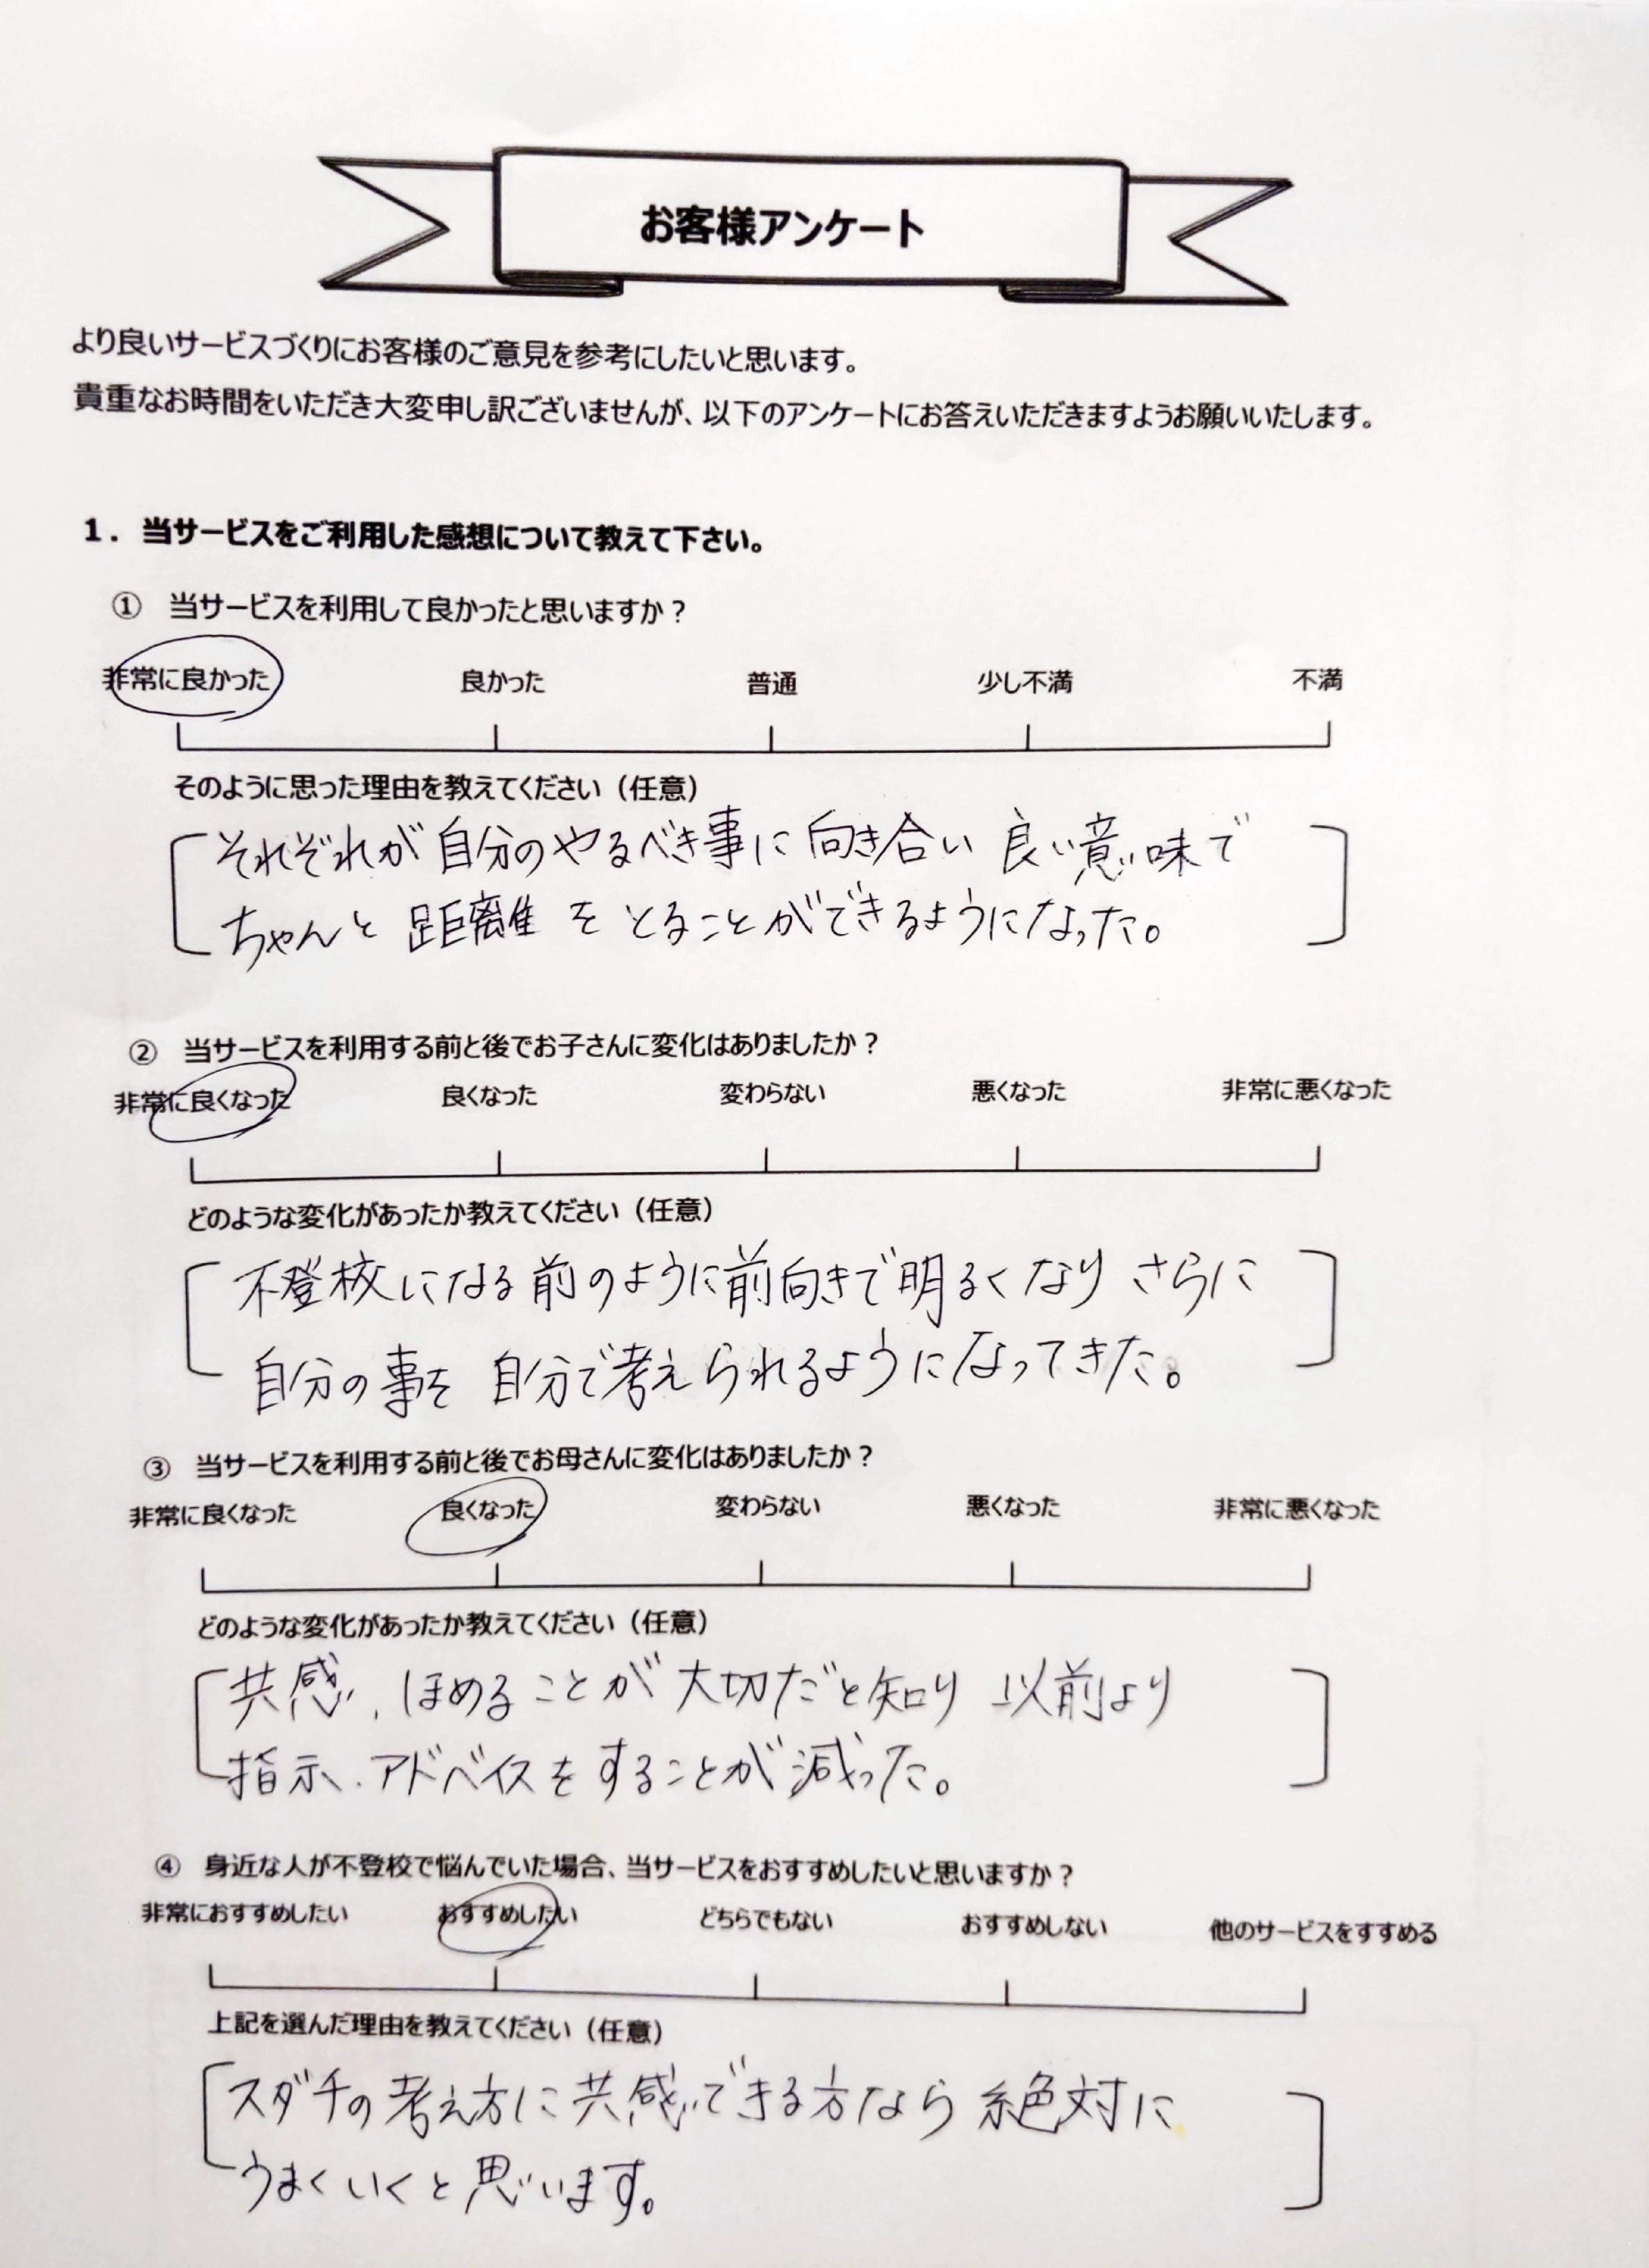 お客様アンケート
より良いサービスづくりにお客様のご意見を参考にしたいと思います。
貴重なお時間をいただき大変申し訳ございませんが、以下のアンケートにお答えいただきますようお願いいたします。
1．当サービスをご利用した感想について教えて下さい。
① 当サービスを利用して良かったと思いますか？
非常に良かった 良かった 普通 少し不満 不満
そのように思った理由を教えてください（任意）
それぞれが自分のやるべき事に向き合い 良い意味で
ちゃんと距離をとることができるようになった。
② 当サービスを利用する前と後でお子さんに変化はありましたか？
非常に良くなった 良くなった 変わらない 悪くなった 非常に悪くなった
どのような変化があったか教えてください（任意）
不登校になる前のように前向きで明るくなり さらに
自分の事を自分で考えられるようになってきた。
③ 当サービスを利用する前と後でお母さんに変化はありましたか？
非常に良くなった 良くなった 変わらない 悪くなった 非常に悪くなった
どのような変化があったか教えてください（任意）
共感、ほめることが大切だと知り 以前より
指示、アドベイスをすることが減った。
④ 身近な人が不登校で悩んでいた場合、当サービスをおすすめしたいと思いますか？
非常におすすめしたい おすすめしたい どちらでもない おすすめしない 他のサービスをすすめる
上記を選んだ理由を教えてください（任意）
スダチの考え方に共感できる方なら絶対に
うまくいくと思います。